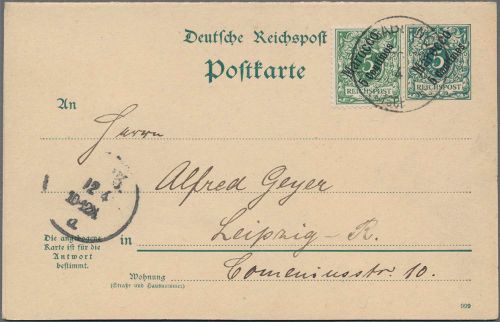 Deutsche Reichspost
Postkarte
Marocco
5 Centimos
5
REICHSPOST
Marocco
5 Centimos
5
REICHSPOST
An
Herrn
Alfred Geyer
in Leipzig-R.
Comeniusstr. 10.
12 4
10-12V
a.
Die angebogene
Karte ist für die
Antwort
bestimmt.
Wohnung
(Straße und Hausnummer)
999